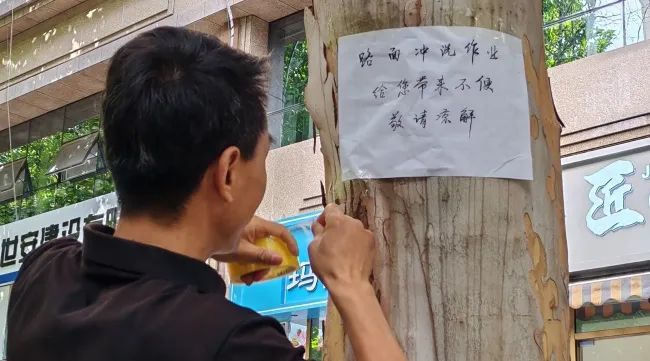 路面冲洗作业
给您带来不便
敬请凉解
世安建设
玛
近